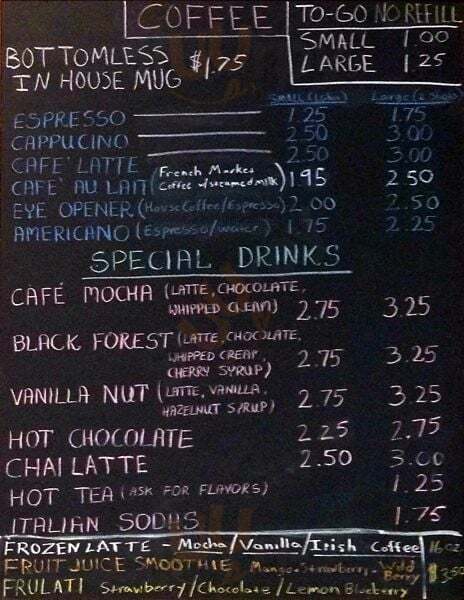 COFFEE
TO-GO NO REFILL
SMALL 1.00
LARGE 1.25
BOTTOMLESS
IN HOUSE MUG $1.75
Large (2 shots)
ESPRESSO 1.25 1.75
CAPPUCINO 2.50 3.00
CAFE' LATTE 2.50 3.00
CAFE' AU LAIT (French Market Coffee w/steamed milk) 1.95 2.50
EYE OPENER (House Coffee/Espresso) 2.00 2.50
AMERICANO (Espresso/water) 1.75 2.25
SPECIAL DRINKS
CAFÉ MOCHA (LATTE, CHOCOLATE,
WHIPPED CREAM) 2.75 3.25
BLACK FOREST (LATTE, CHOCOLATE,
WHIPPED CREAM,
CHERRY SYRUP) 2.75 3.25
VANILLA NUT (LATTE, VANILLA,
HAZELNUT SYRUP) 2.75 3.25
HOT CHOCOLATE 2.25 2.75
CHAI LATTE 2.50 3.00
HOT TEA (ASK FOR FLAVORS) 1.25
ITALIAN SODAS 1.75
FROZEN LATTE - Mocha/Vanilla/Irish Coffee 16oz
FRUIT JUICE SMOOTHIE Mango-Strawberry-Wild Berry $3.50
FRULATI Strawberry/Chocolate/Lemon Blueberry